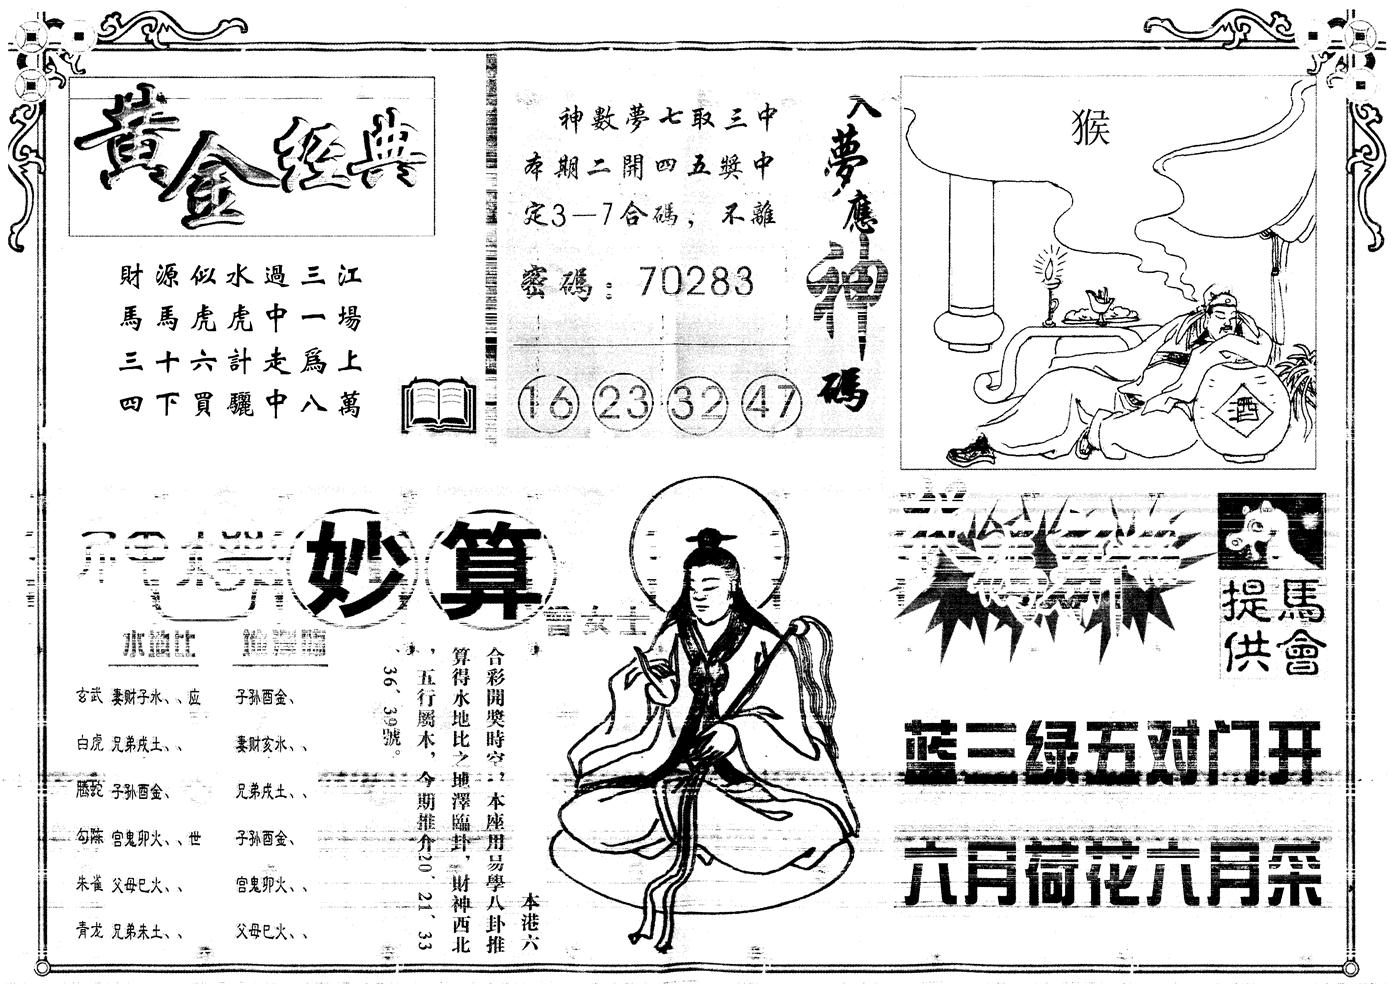 黃金經典
財源似水過三江
馬馬虎虎中一場
三十六計走爲上
四下買驪中八萬
神數夢七取三中
本期二開四五獎中
定3—7合碼，不離
密碼：70283
16 23 32 47
入夢應神碼
猴
酒
妙算
曾女士
水地比 地澤臨
玄武 妻财子水、、应 子孙酉金、
白虎 兄弟戌土、、 妻财亥水、、
螣蛇 子孙酉金、 兄弟戌土、、
勾陈 官鬼卯火、、世 子孙酉金、
朱雀 父母巳火、、 官鬼卯火、、
青龙 兄弟未土、、 父母巳火、、
本港六
合彩開獎時空，本座用易學八卦推
算得水地比之地澤臨卦，財神西北
，五行屬木，今期推介20、21、33
、36、39號。
馬會
提供
蓝三绿五对门开
六月荷花六月采